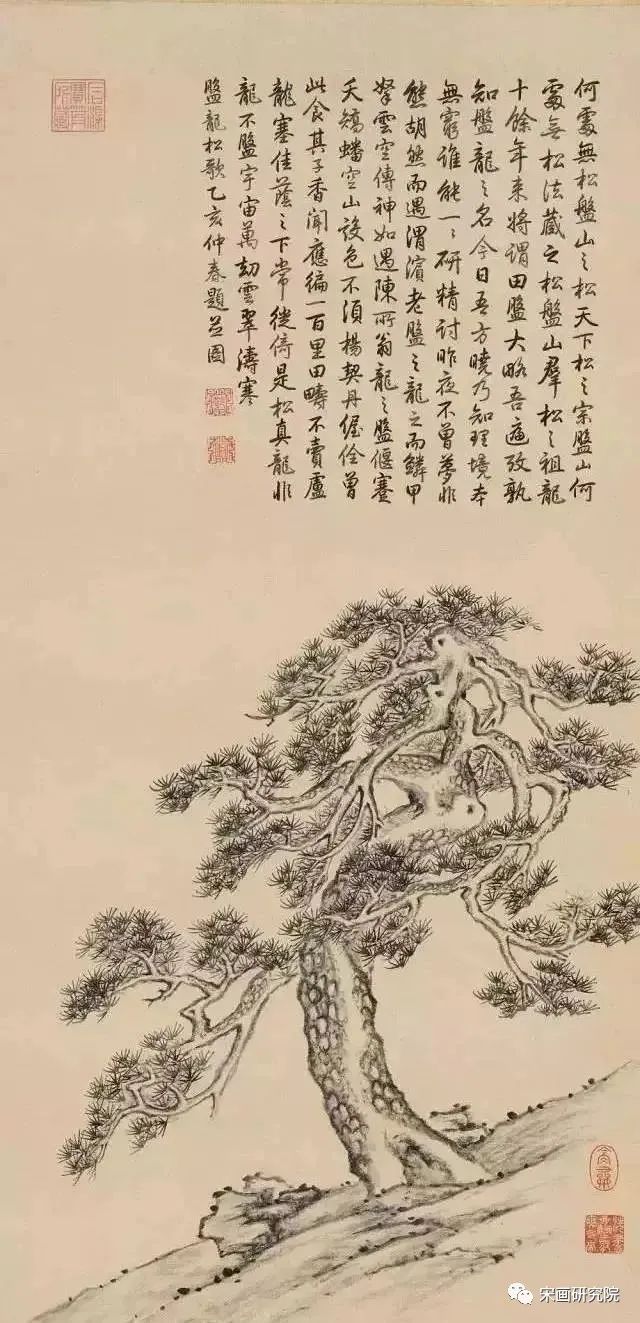 何處無松盤山之松天下松之宗盤山何
處無松法藏之松盤山羣松之祖龍
十餘年来將謂田盤大略吾遍攷孰
知盤龍之名今日吾方曉乃知理境本
無窮誰能一一研精討昨夜不曾夢非
熊胡然而遇渭濱老盤之龍之而鱗甲
拏雲空傳神如遇陳所翁龍之盤偃蹇
夭矯蟠空山設色不須楊契丹偓佺曾
此食其子香聞應徧一百里田疇不賣盧
龍塞佳蔭之下常徙倚是松真龍非
龍不盤宇宙萬劫雲翠濤寒
盤龍松歌乙亥仲春題並圖
宋画研究院